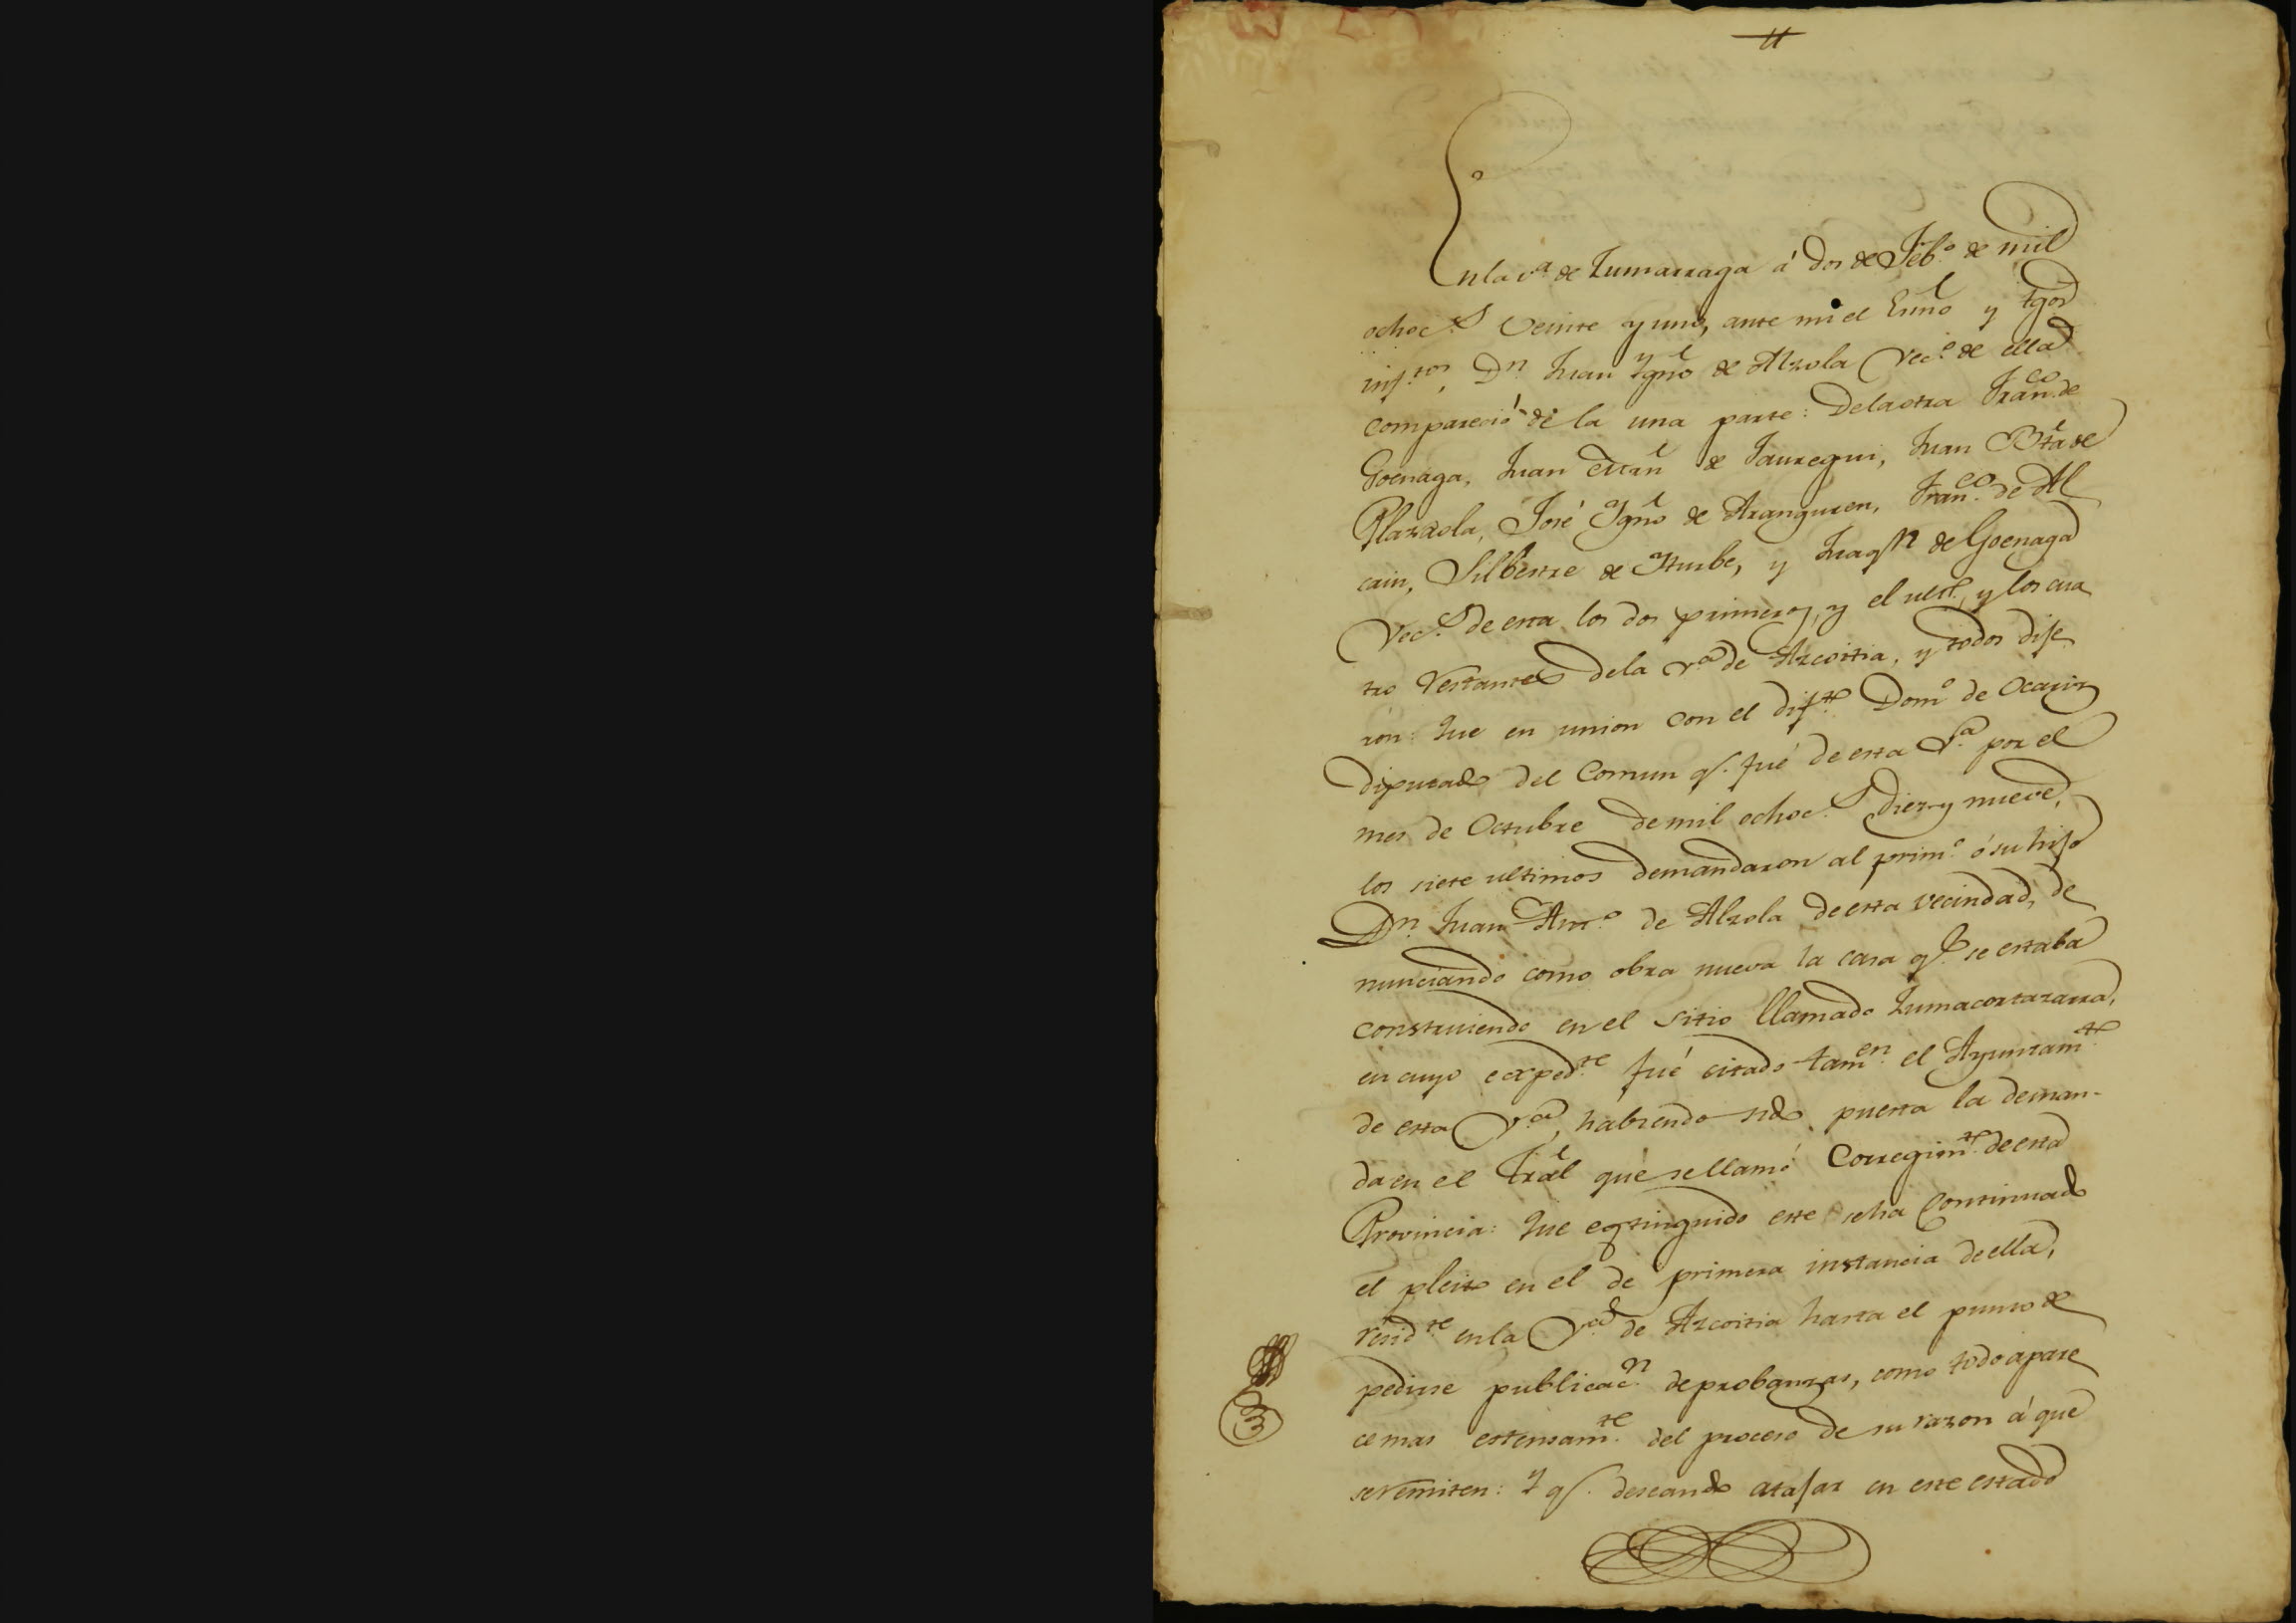 En la v.ª de Zumarraga á dos de Feb.º de mil
ochoc.s veinte y uno, ante mi el Ermo y tgos
infros, Dn. Juan Ygno de Alzola vec.º de ella
compareció de la una parte: Dela otra Fran.co de
Goenaga, Juan Man.l de Jauregui, Juan Bta de
Plazaola, José Ygno de Aranguren, Fran.co de Al
cain, Silbestre de Yturbe, y Juaqn de Goenaga
Vec.s de esta los dos primeros, y el ult.º, y los cua
tro restantes dela v.ª de Azcoitia, y todos dije
ron: Que en union con el dif.to Dom.º de Ocariz
diputado del Comun q.e fué de esta v.ª por el
mes de Octubre de mil ochoc.s diez y nueve,
los siete ultimos demandaron al prim.º ó su hijo
Dn. Juan Ant.º de Alzola de esta vecindad, de
nunciando como obra nueva la casa q.e se estaba
construiendo en el sitio llamado Zumacortazarra,
en cuyo exped.te fué citado tam.en el Ayuntam.to
de esta v.ª, habiendo sido puesta la deman-
da en el Tral que se llamó Corregim.to de esta
Provincia: Que extinguido este se ha continuado
el pleito en el de primera instancia de ella,
resid.te en la v.ª de Azcoitia hasta el punto de
pedirse publicac.n de probanzas, como todo apare
ce mas estensam.te del proceso de su razon á que
se remiten: Y q.e deseando atajar en este estado